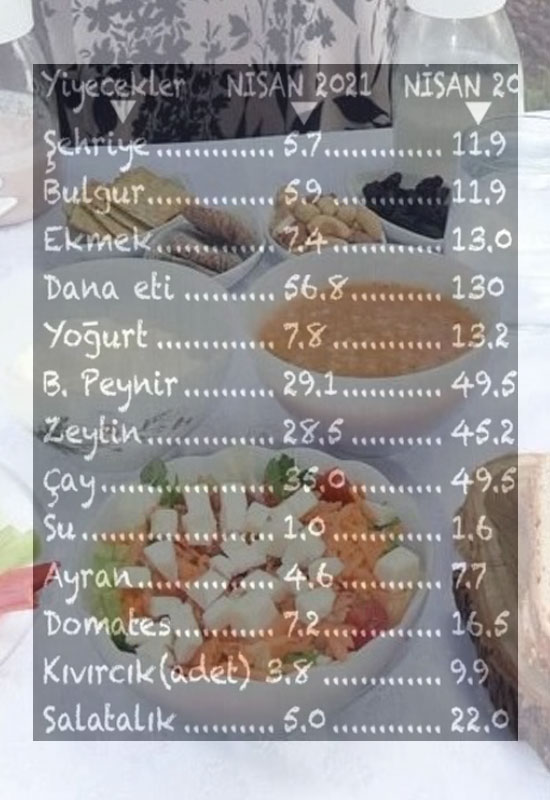 Yiyecekler NİSAN 2021 NİSAN 20
Şehriye.............. 5.7.............. 11.9
Bulgur............... 5.9 .............. 11.9
Ekmek.............. 7.4.............. 13.0
Dana eti ........... 56.8.............. 130
Yoğurt .............. 7.8 .............. 13.2
B. Peynir........... 29.1.............. 49.5
Zeytin............... 28.5 .............. 45.2
Çay................... 35.0.............. 49.5
Su ..................... 1.0 .............. 1.6
Ayran................ 4.6 .............. 7.7
Domates............ 7.2.............. 16.5
Kıvırcık(adet) 3.8 .............. 9.9
Salatalık ........... 5.0.............. 22.0